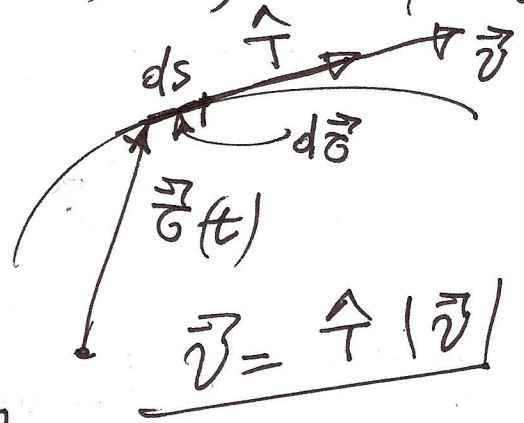 T̂
v⃗
ds
dσ⃗
σ⃗(t)
v⃗ = T̂ |v⃗|